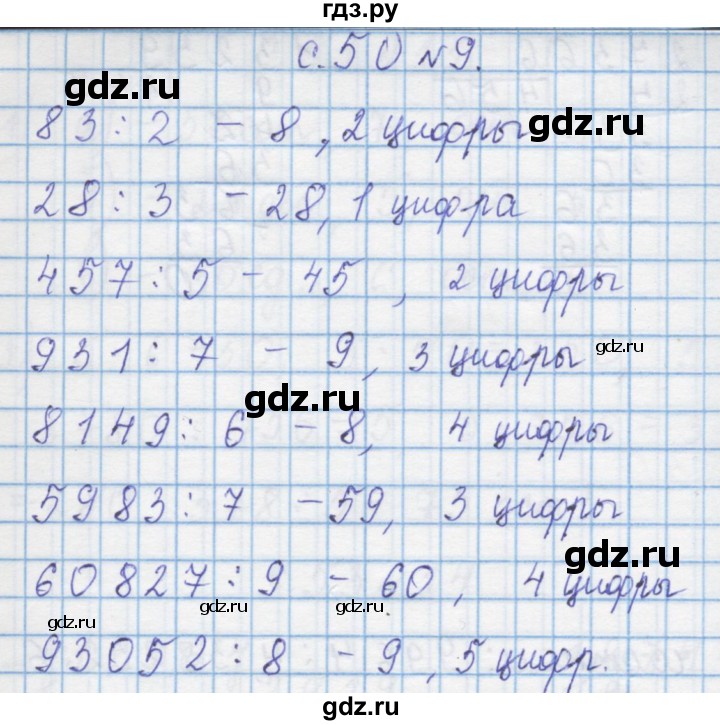 гдз.ру
с. 50 №9.
gdz.ru
gdz.ru
83 : 2 – 8, 2 цифры
28 : 3 – 28, 1 цифра
457 : 5 – 45, 2 цифры
gdz.ru
931 : 7 – 9, 3 цифры
gdz.ru
8149 : 6 – 8, 4 цифры
5983 : 7 – 59, 3 цифры
gdz.ru
60827 : 9 – 60, 4 цифры
gdz.ru gdz.ru gdz.ru
93052 : 8 – 9, 5 цифр.
gdz.ru gdz.ru